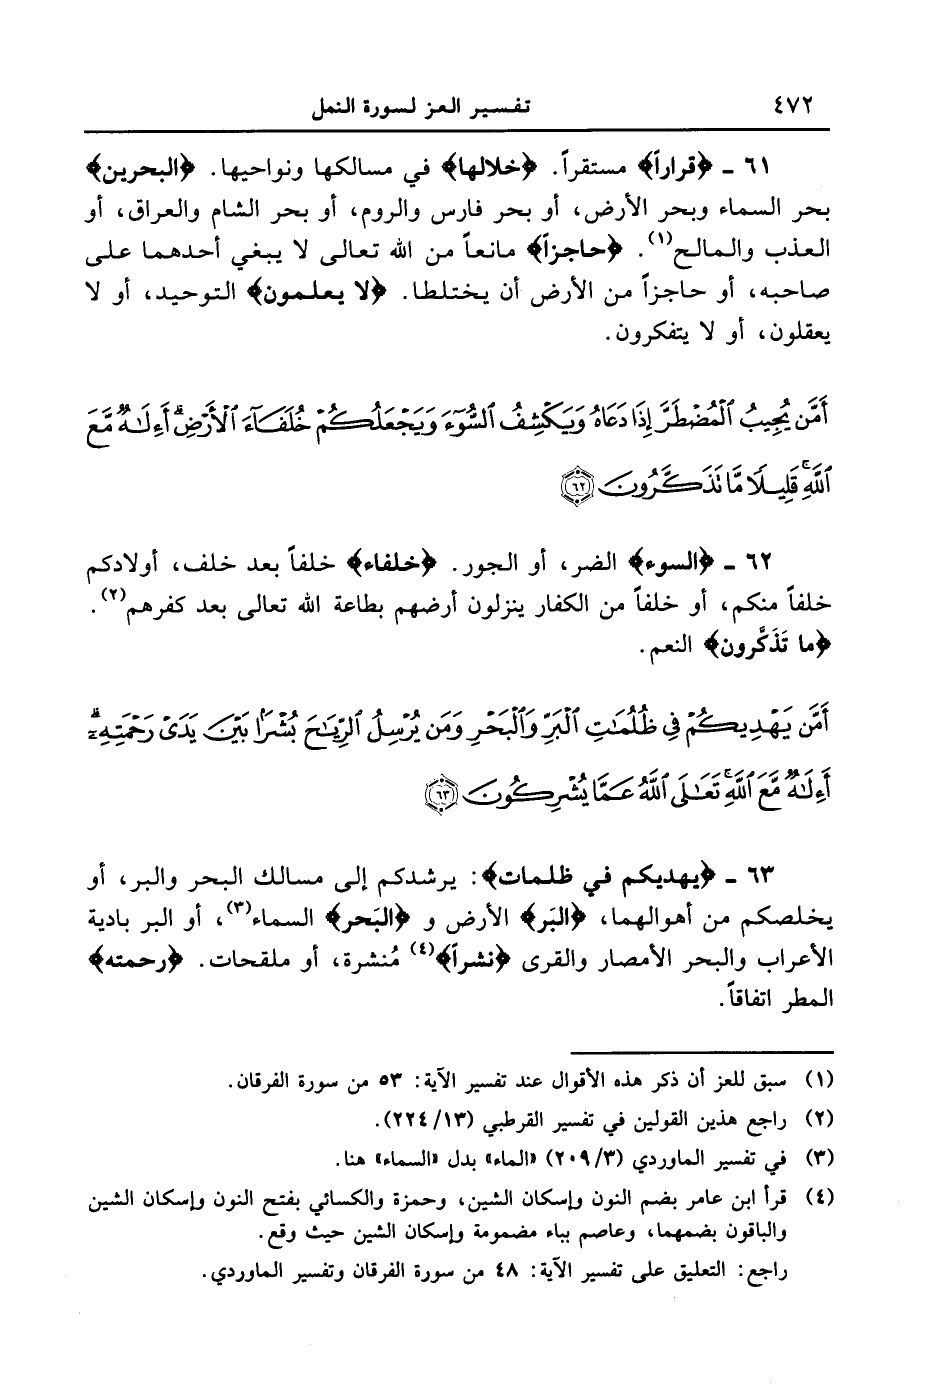 ٤٧٢ تفسير العز لسورة النمل
٦١ ـ ﴿قراراً﴾ مستقراً. ﴿خلالها﴾ في مسالكها ونواحيها. ﴿البحرين﴾
بحر السماء وبحر الأرض، أو بحر فارس والروم، أو بحر الشام والعراق، أو
العذب والمالح(١). ﴿حاجزاً﴾ مانعاً من الله تعالى لا يبغي أحدهما على
صاحبه، أو حاجزاً من الأرض أن يختلطا. ﴿لا يعلمون﴾ التوحيد، أو لا
يعقلون، أو لا يتفكرون.
أَمَّن يُجِيبُ ٱلْمُضْطَرَّ إِذَا دَعَاهُ وَيَكْشِفُ ٱلسُّوٓءَ وَيَجْعَلُكُمْ خُلَفَآءَ ٱلْأَرْضِ ۗ أَءِلَٰهٌ مَّعَ
ٱللَّهِ ۚ قَلِيلًا مَّا تَذَكَّرُونَ ﴿٦٢﴾
٦٢ ـ ﴿السوء﴾ الضر، أو الجور. ﴿خلفاء﴾ خلفاً بعد خلف، أولادكم
خلفاً منكم، أو خلفاً من الكفار ينزلون أرضهم بطاعة الله تعالى بعد كفرهم(٢).
﴿ما تَذَكَّرون﴾ النعم.
أَمَّن يَهْدِيكُمْ فِي ظُلُمَٰتِ ٱلْبَرِّ وَٱلْبَحْرِ وَمَن يُرْسِلُ ٱلرِّيَٰحَ بُشْرًۢا بَيْنَ يَدَىْ رَحْمَتِهِۦٓ ۗ
أَءِلَٰهٌ مَّعَ ٱللَّهِ ۚ تَعَٰلَى ٱللَّهُ عَمَّا يُشْرِكُونَ ﴿٦٣﴾
٦٣ ـ ﴿يهديكم في ظلمات﴾: يرشدكم إلى مسالك البحر والبر، أو
يخلصكم من أهوالهما، ﴿البَر﴾ الأرض و ﴿البَحر﴾ السماء(٣)، أو البر بادية
الأعراب والبحر الأمصار والقرى ﴿نشراً﴾(٤) مُنشرة، أو ملقحات. ﴿رحمته﴾
المطر اتفاقاً.
(١) سبق للعز أن ذكر هذه الأقوال عند تفسير الآية: ٥٣ من سورة الفرقان.
(٢) راجع هذين القولين في تفسير القرطبي (١٣/٢٢٤).
(٣) في تفسير الماوردي (٣/٢٠٩) «الماء» بدل «السماء» هنا.
(٤) قرأ ابن عامر بضم النون وإسكان الشين، وحمزة والكسائي بفتح النون وإسكان الشين
والباقون بضمهما، وعاصم بباء مضمومة وإسكان الشين حيث وقع.
راجع: التعليق على تفسير الآية: ٤٨ من سورة الفرقان وتفسير الماوردي.